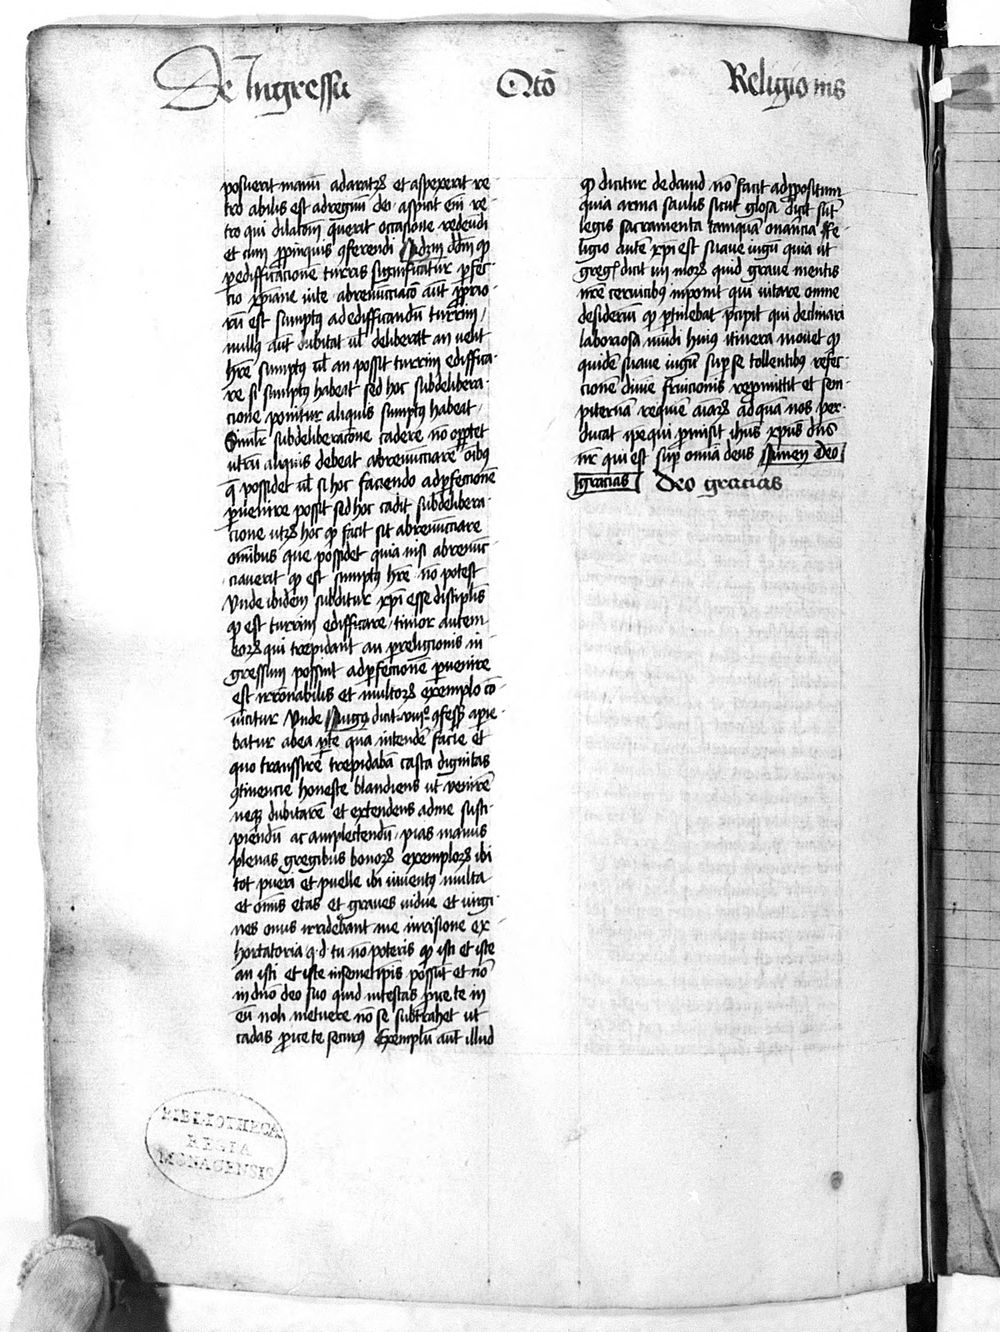 De Ingressu Octō Religionis
posuerit manū ad aratrꝝ et aspexerit re-
tro abilis est ad regnū dei · aspicit em̄ re-
tro qui dilatōem querit occasione redeundi
et cum ꝓpinquis ꝯferendi
ꝑ edifficacione turris significatur ꝑfec-
cio xp̄iane vite · abrenūciacō aūt ꝓprio-
rū est sumptꝰ ad edifficandū turrim /
nullꝰ aūt dubitat vl̄ deliberat an velit
hr̄e sumptꝰ vl̄ an possit turrim ediffica-
re si sumptꝰ habeat sed hoc sub delibera-
cione ponitur an aliquis sumptꝰ habeat /
Simlr̄ sub deliberacōne cadere nō oportet
utrū aliquis debeat abrenūciare oībꝰ
q̄ possidet vl̄ si hoc faciendo ad ꝑfectionē
ꝑuenire possit sed hoc cadit sub delibera-
cione utrꝝ hoc qd̓ facit sit abrenūciare
omībus que possidet quia nisi abrenū-
ciauerit qd̓ est sumptꝰ hr̄e nō potest
Vnde ibidem subditur xp̄i esse discipls̄
qd̓ est turrim edifficare / timor autem
eorꝝ qui trepidant an ꝑ religionis in-
gressum possint ad ꝑfectionē ꝑuenire
est irrōnabilis et multorꝝ exemplo cō-
uincitur Vnde Augꝰ dicit viijº ꝯfess̄ aperie-
batur ab ea ꝑte qua intenderā facie et
quo transsire trepidabā casta dignitas
ꝯtinencie honeste blandiens ut venirē
neqꝫ dubitarē et extendens ad me susci-
piendū ac amplectendū / pias manus
plenas gregibus bonorꝝ exemplorꝝ ibi
tot pueri et puelle ibi iuuentꝰ multa
et omīs etas et graues vidue et virgi-
nes anus irridebant me irrisione ex-
hortatoria q·d tu nō poteris qd̓ isti et iste
an isti et iste in semetip̄is possūt et nō
in dn̄o deo suo quid in te stas ꝓice te in
eū noli metuere nō se subtrahet ut
cadas ꝓice te securꝰ Exemplū aūt illud
qd̓ dicitur de dauid nō facit ad ꝓpositum
quia arma saulis sicut glosa dicit sūt
legis sacramenta tamquā onerancia Re-
ligio aūte xp̄i est suaue iugū quia ut
greg͛ dicit iiij morꝝ quid graue mentis
nr̄e ceruicibꝰ inponit qui vitare omne
desideriū qd̓ ꝑturbat p̄cipit qui declinari
laboriosa mūdi huiꝰ itinera monet qd̓
quidē suaue iugū suꝑ se tollentibꝰ refec-
cionē diuine fruicionis repmittit et sem-
piternā requiē aīarꝝ ad quā nos per-
ducat ip̄e qui ꝓmisit ihūs xpūs dn̄s
nr̄ qui est sup omīa deus Amen deo
gracias Deo gracias
BIBLIOTHECA
REGIA
MONACENSIS